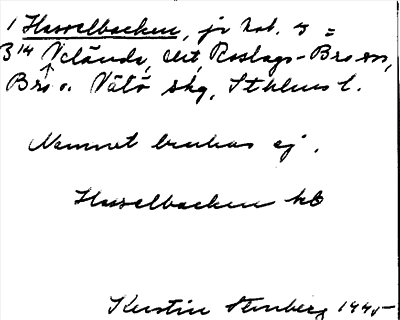 1 Hasselbacken, jr kat. 3 =
3¹⁴ Velända, Roslags-Bro sn,
Bro o. Vätö skg, Sthlms l.
Namnet brukas ej.
Hasselbacken kb
Kerstin Stenberg 1945